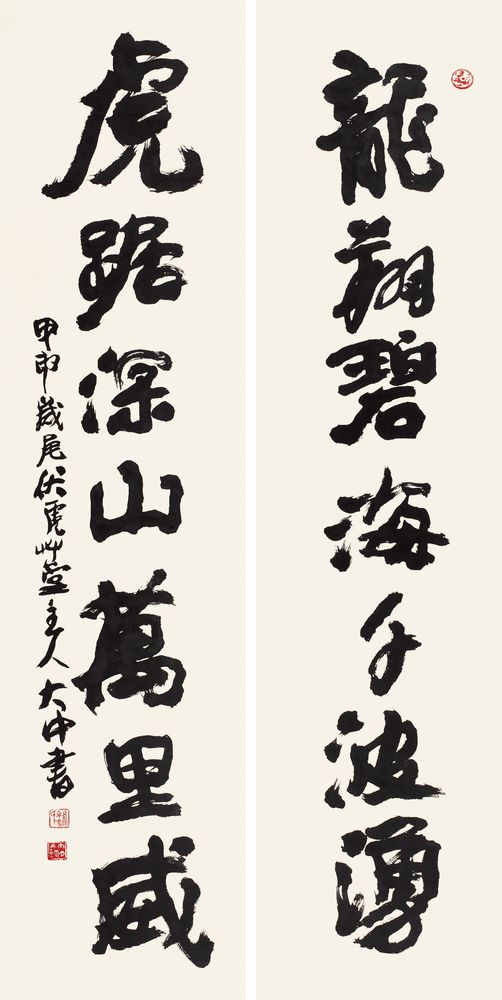 龍翔碧海千波湧
虎踞深山萬里威
甲申歲尾伏虎艸堂主人大中書